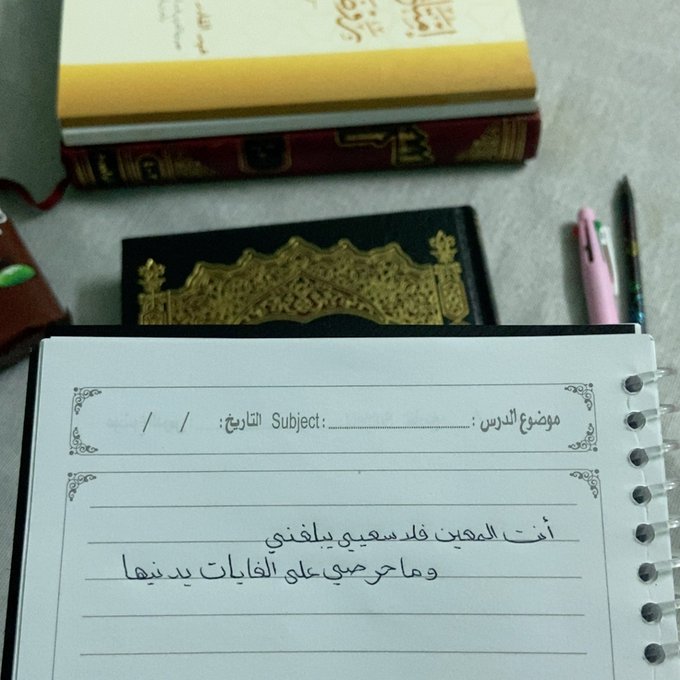 موضوع الدرس : Subject: التاريخ : / /
أنت المعين فلا سعيي يبلغني
وما حرصي على الغايات يدنيها